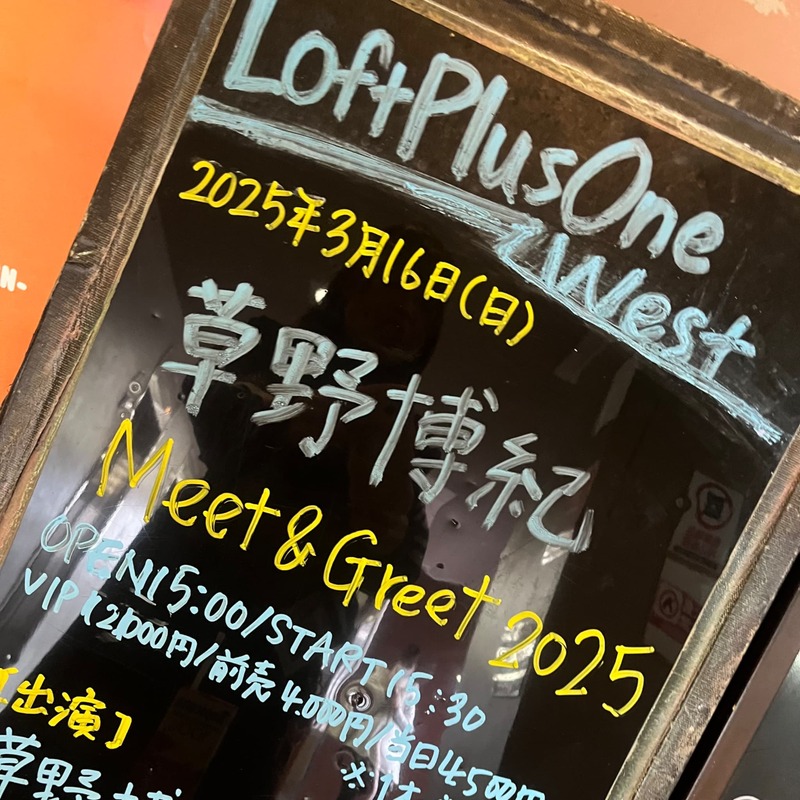 LoftPlusOne
West
2025年3月16日(日)
草野博紀
Meet & Greet 2025
OPEN15:00/START15:30
VIP12,000円/前売4,000円/当日4,500円
※
【出演】
草野博